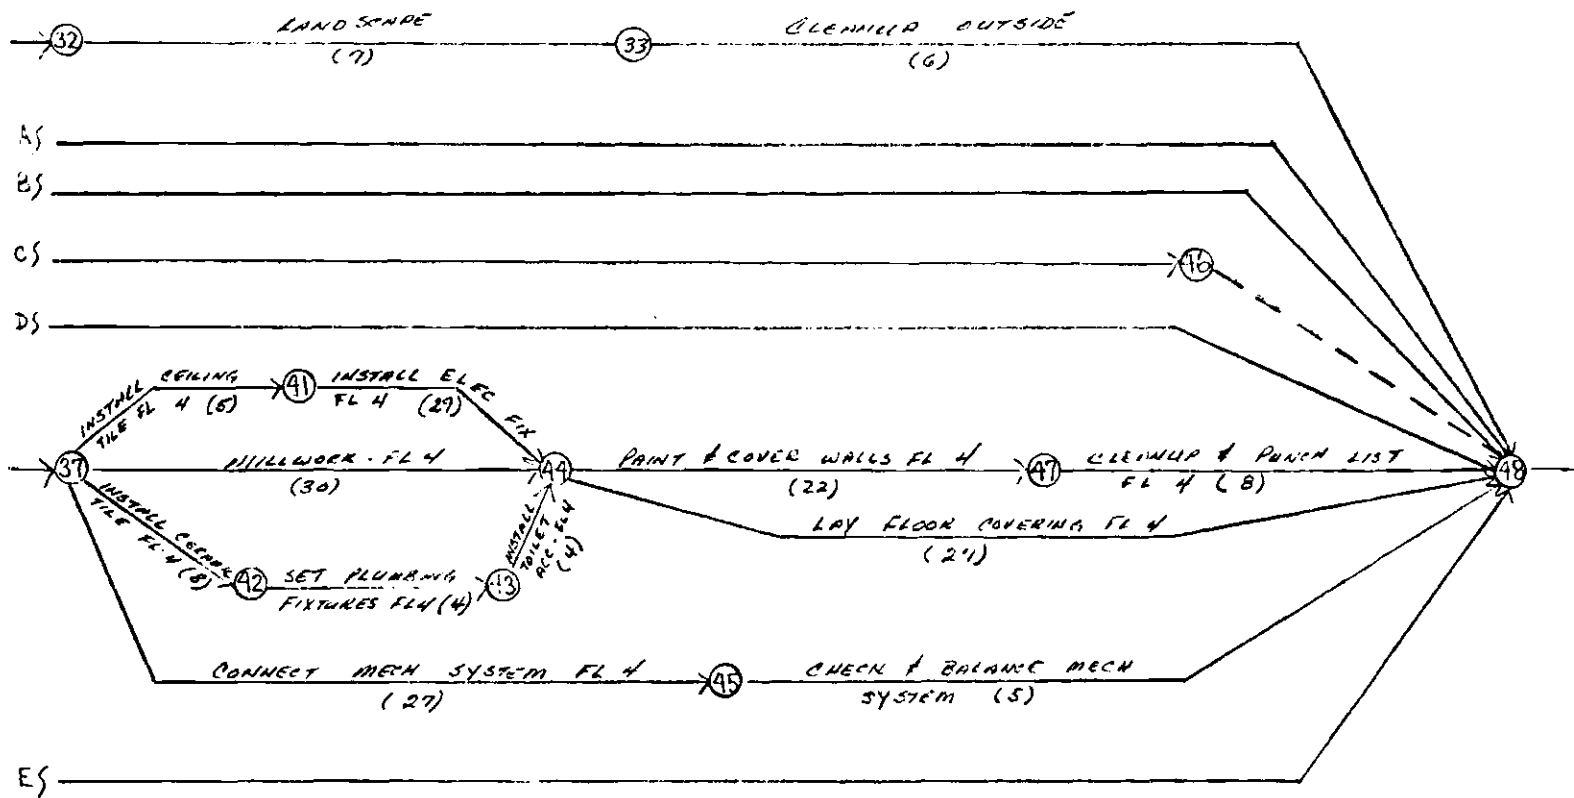 LANDSCAPE
32
(7)
33
CLEANUP OUTSIDE
(6)
A
B
C
46
D
INSTALL CEILING
TILE FL 4 (5)
41
INSTALL ELEC FIX
FL 4 (29)
37
MILLWORK - FL 4
(30)
44
PAINT & COVER WALLS FL 4
(22)
47
CLEANUP & PUNCH LIST
FL 4 (8)
48
LAY FLOOR COVERING FL 4
INSTALL CERAMIC
TILE FL 4 (8)
42
SET PLUMBING
FIXTURES FL4 (4)
43
INSTALL
TOILET
ACC. FL4
(4)
CONNECT MECH SYSTEM FL 4
(27)
45
CHECK & BALANCE MECH
SYSTEM (5)
E